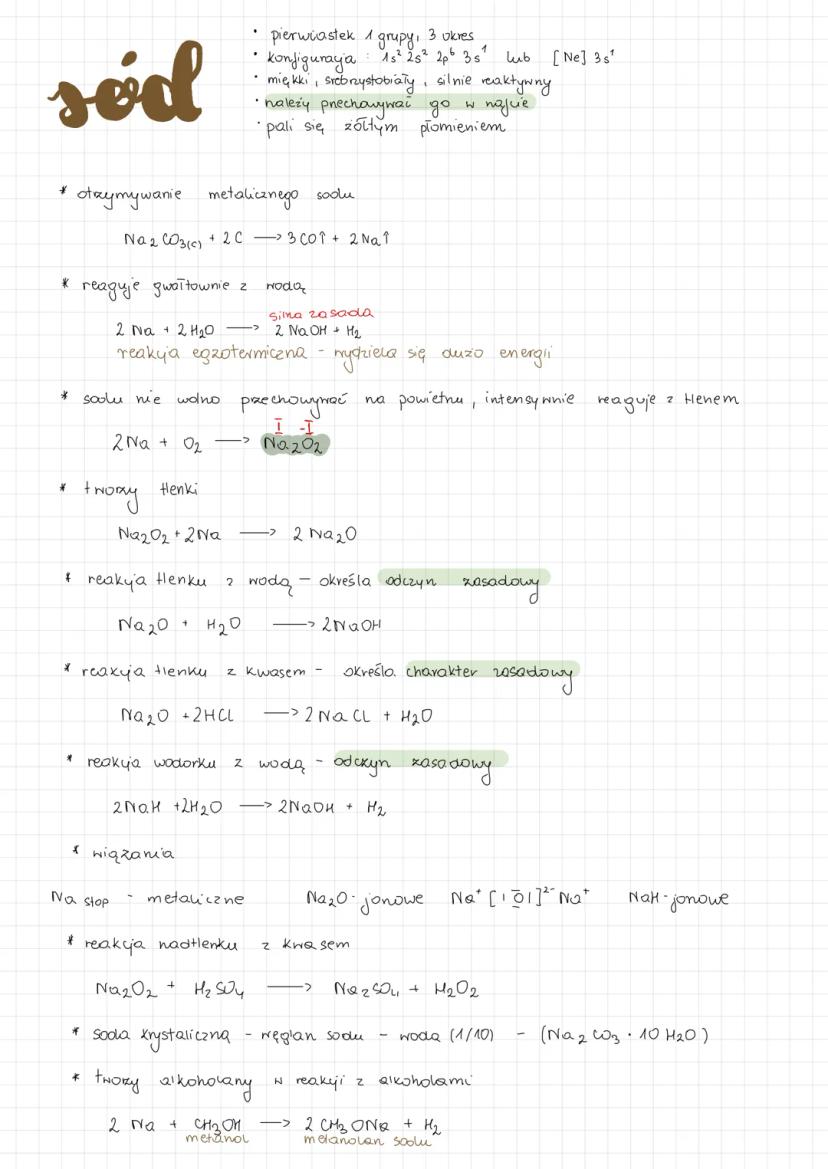 sód
• pierwiastek 1 grupy, 3 okres
• konfiguracja : 1s² 2s² 2p⁶ 3s¹ lub [Ne] 3s¹
• miękki, srebrzystobiały, silnie reaktywny
• należy przechowywać go w nafcie
• pali się żółtym płomieniem
* otrzymywanie metalicznego sodu
Na₂CO₃(c) + 2C → 3CO↑ + 2Na↑
* reaguje gwałtownie z wodą
silna zasada
2 Na + 2H₂O → 2 NaOH + H₂
reakcja egzotermiczna - wydziela się dużo energii
* sodu nie wolno przechowywać na powietrzu, intensywnie reaguje z tlenem
I -I
2Na + O₂ → Na₂O₂
* tworzy tlenki
Na₂O₂ + 2Na → 2 Na₂O
* reakcja tlenku z wodą – określa odczyn zasadowy
Na₂O + H₂O → 2NaOH
* reakcja tlenku z kwasem - określa charakter zasadowy
Na₂O + 2HCl → 2NaCl + H₂O
* reakcja wodorku z wodą - odczyn zasadowy
2NaH + 2H₂O → 2NaOH + H₂
* wiązania
Na stop - metaliczne Na₂O - jonowe Na⁺ [|O̅|]²⁻ Na⁺ NaH - jonowe
* reakcja nadtlenku z kwasem
Na₂O₂ + H₂SO₄ → Na₂SO₄ + H₂O₂
* soda krystaliczną - węglan sodu - woda (1/10) - (Na₂CO₃ · 10 H₂O)
* tworzy alkoholany w reakcji z alkoholami
2 Na + CH₃OH → 2 CH₃ONa + H₂
metanol metanolan sodu